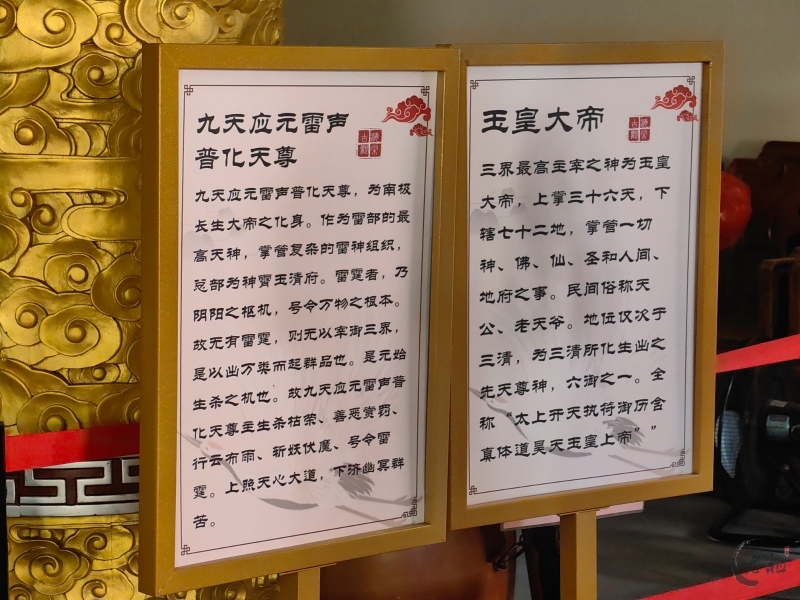 九天应元雷声
普化天尊
九天应元雷声普化天尊，为南极
长生大帝之化身。作为雷部的最
高天神，掌管复杂的雷神组织，
总部为神霄玉清府。雷霆者，乃
阴阳之枢机，号令万物之根本。
故无有雷霆，则无以宰御三界，
是以出万类而起群品也。是元始
生杀之机也。故九天应元雷声普
化天尊主生杀枯荣、善恶赏罚、
行云布雨、斩妖伏魔、号令雷
霆。上照天心大道，下济幽冥群
苦。
玉皇大帝
三界最高主宰之神为玉皇
大帝，上掌三十六天，下
辖七十二地，掌管一切
神、佛、仙、圣和人间、
地府之事。民间俗称天
公、老天爷。地位仅次于
三清，为三清所化生出之
先天尊神，六御之一。全
称“太上开天执符御历含
真体道昊天玉皇上帝”"